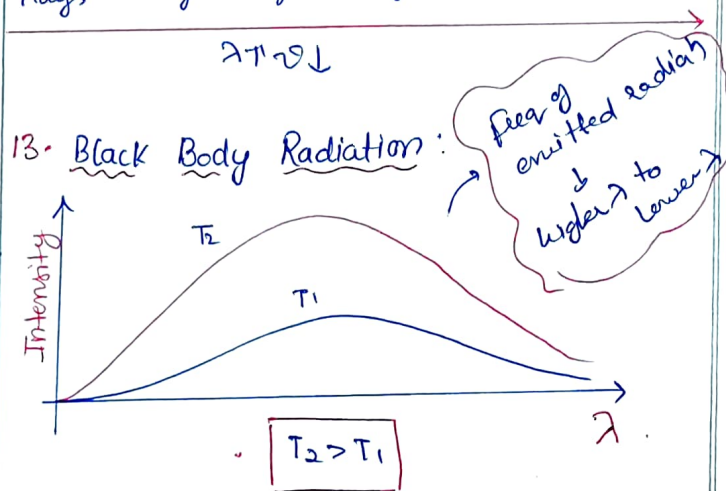 λ↑ ν↓
13. Black Body Radiation:
freq of
emitted radian
↓
higher λ to
lower λ
Intensity
T₂
T₁
λ.
T₂ > T₁